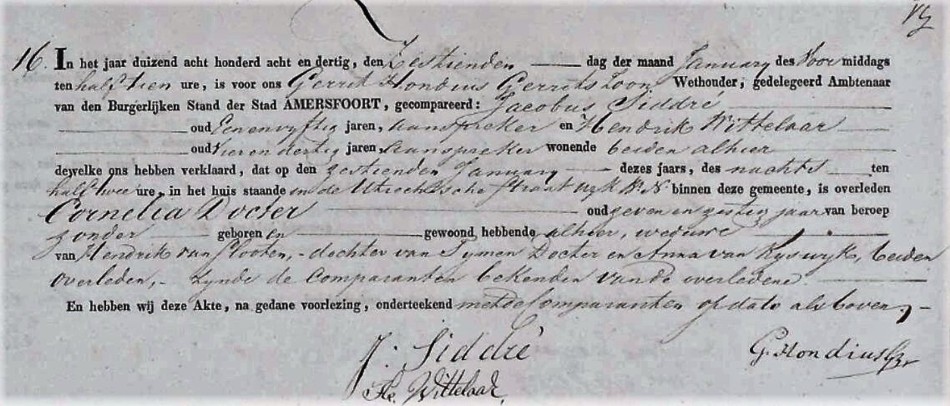 16. In het jaar duizend acht honderd acht en dertig, den Zestienden dag der maand January des Voor middags
ten half tien ure, is voor ons Gerrit Hondius Gerritszoon Wethouder, gedelegeerd Ambtenaar
van den Burgerlijken Stand der Stad AMERSFOORT, gecompareerd: Jacobus Siddré
oud Een en vyftig jaren, aanspreker en Hendrik Wittelaar
oud Vier en dertig jaren, aanspreker wonende beiden alhier
dewelke ons hebben verklaard, dat op den zestienden January dezes jaars, des nachts ten
half twee ure, in het huis staande in de Utrechtsche straat wyk B. N. binnen deze gemeente, is overleden
Cornelia Docter oud zeven en zestig jaar van beroep
zonder geboren en gewoond, hebbende alhier, weduwe
van Hendrik van Slooten, - dochter van Tymen Docter en Anna van Ryswyk, beiden
overleden, - zynde de Comparanten bekenden van de overledene.
En hebben wij deze Akte, na gedane voorlezing, onderteekend met de Comparanten op dato als boven, -
J. Siddré
G. Hondius Gz
Hk. Wittelaar,